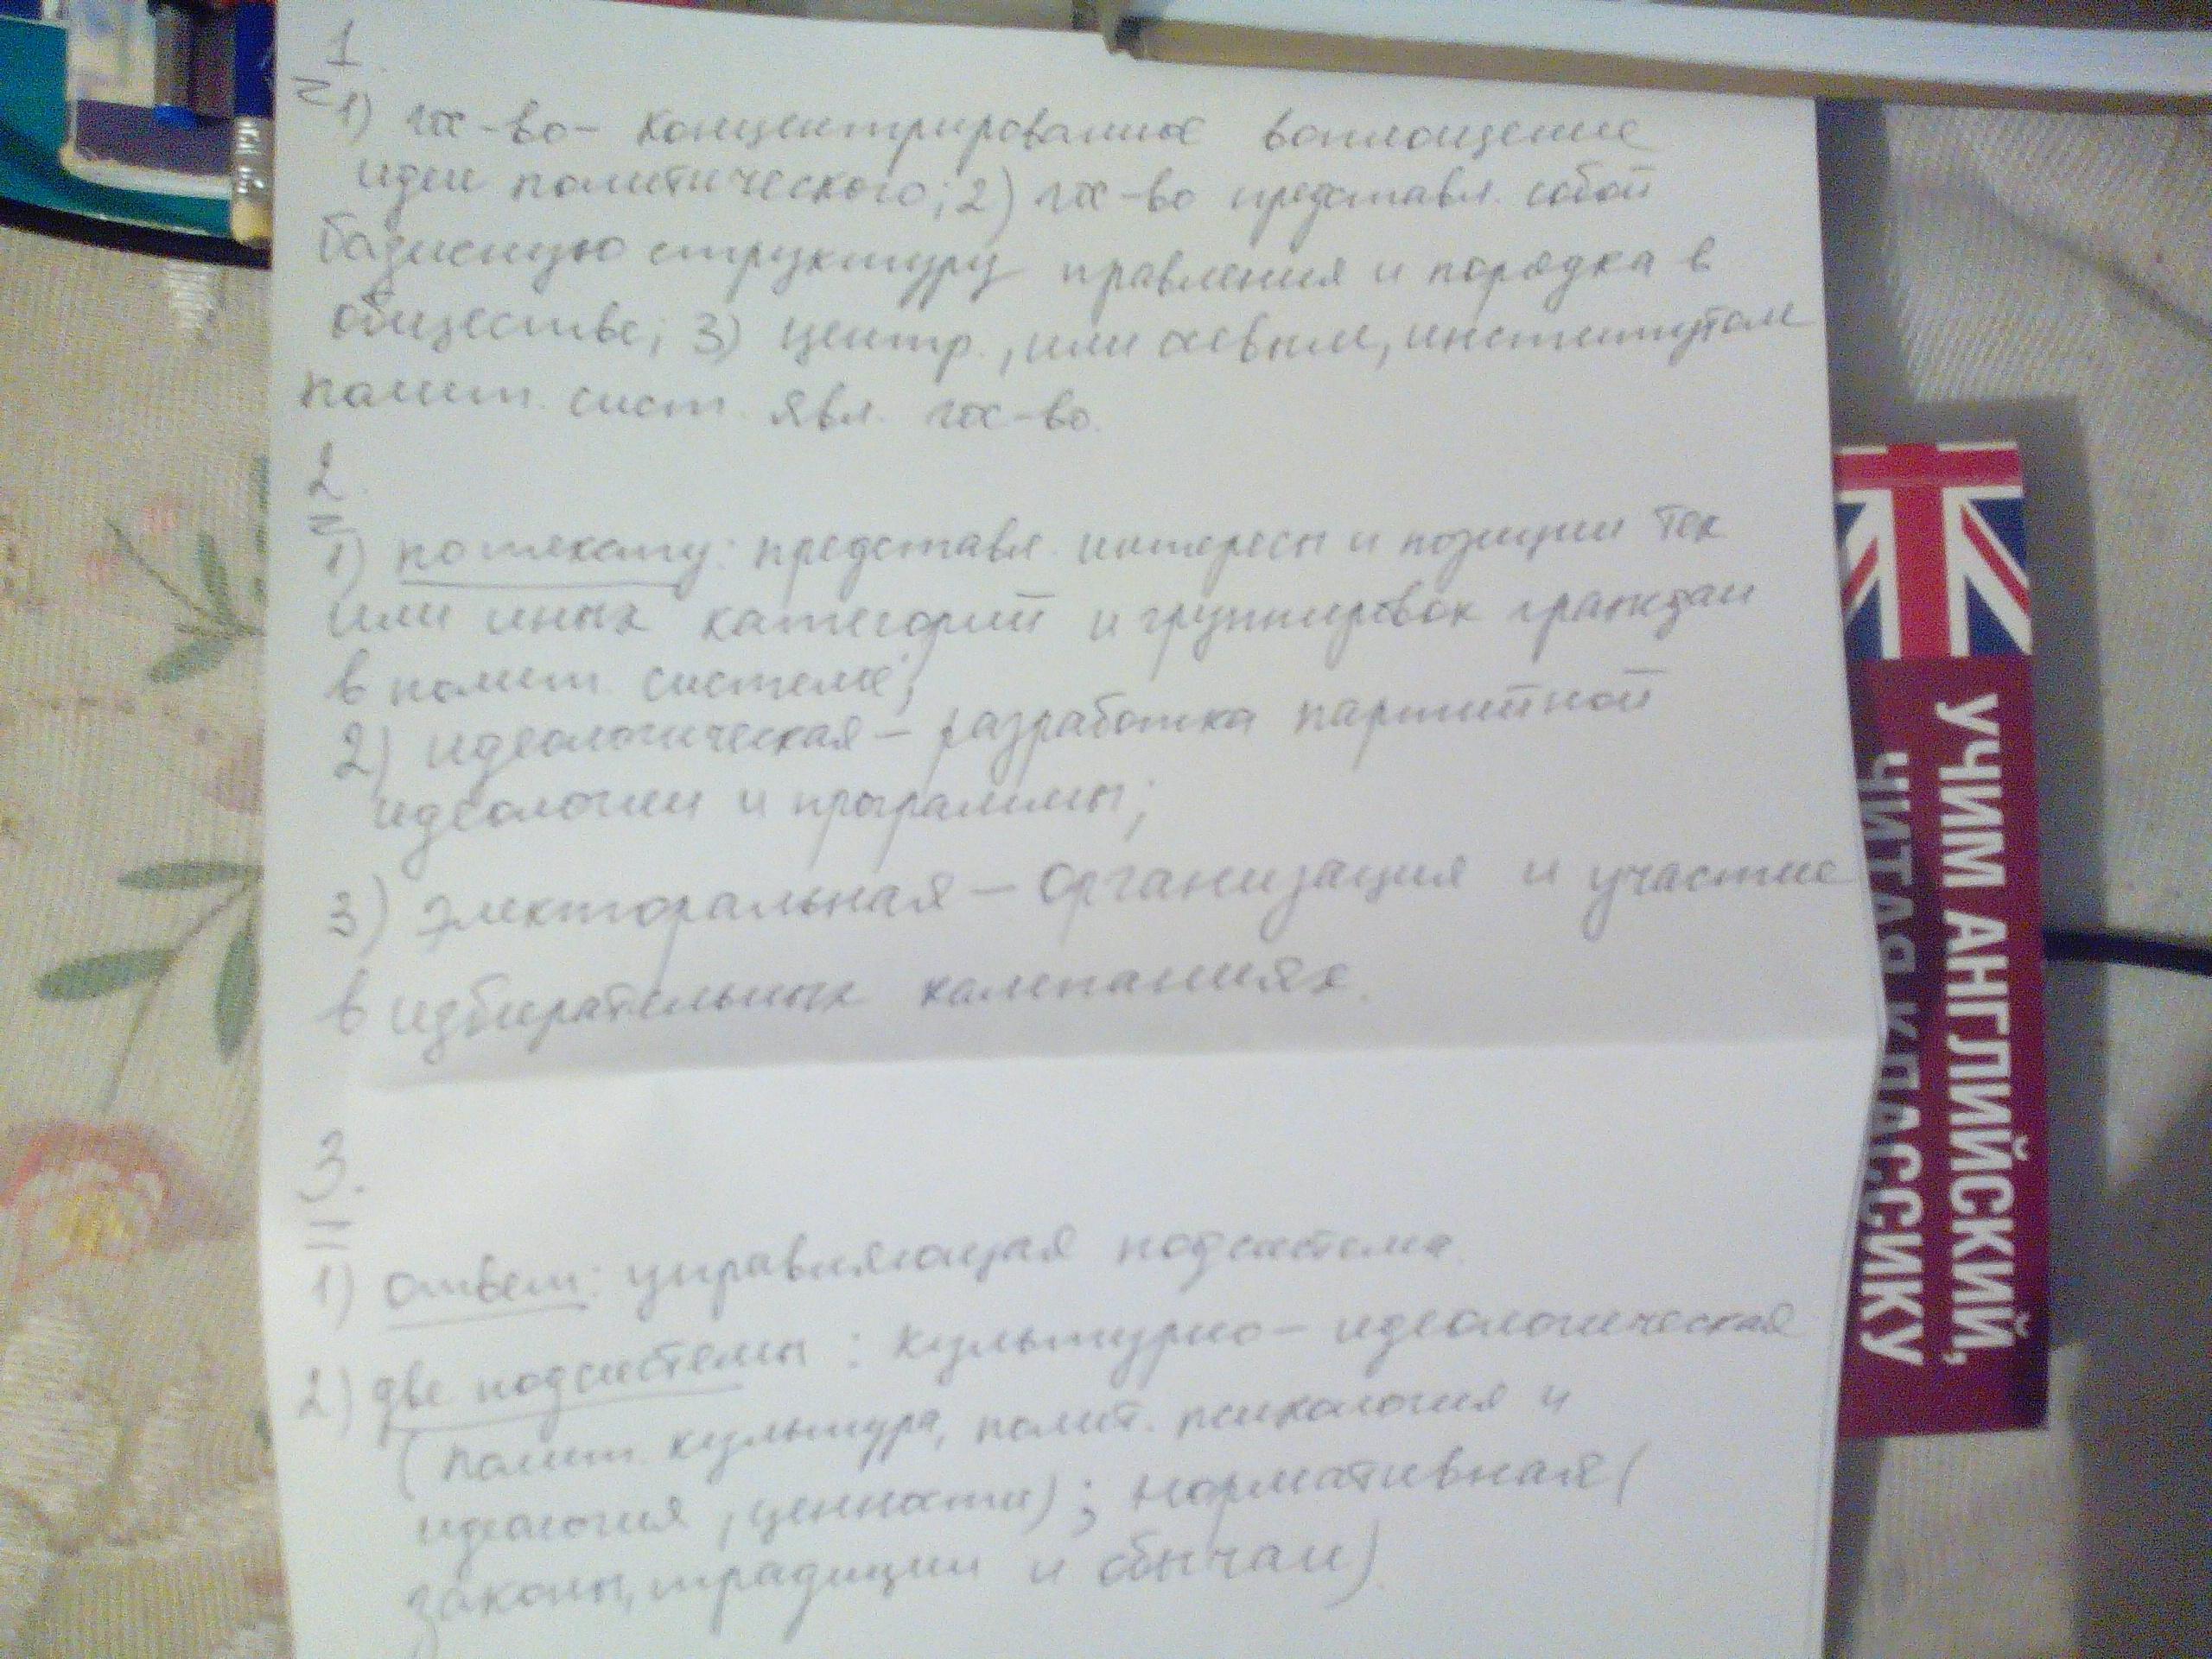 1.
1) гос-во- концентрированное воплощение
идеи политического; 2) гос-во представл. собой
базисную структуру правления и порядка в
обществе; 3) центр., или осевым, институтом
полит. сист. явл. гос-во.
2.
1) по тексту: представл. интересы и позиции тех
или иных категорий и группировок граждан
в полит. системе;
2) идеологическая – разработка партийной
идеологии и программы;
3) электоральная – организация и участие
в избирательных кампаниях.
3.
1) ответ: управляющая подсистема.
2) две подсистемы: культурно-идеологическая
(полит. культура, полит. психология и
идеология, ценности); нормативная (
законы, традиции и обычаи)
УЧИМ АНГЛИЙСКИЙ,
ЧИТАЯ КЛАССИКУ